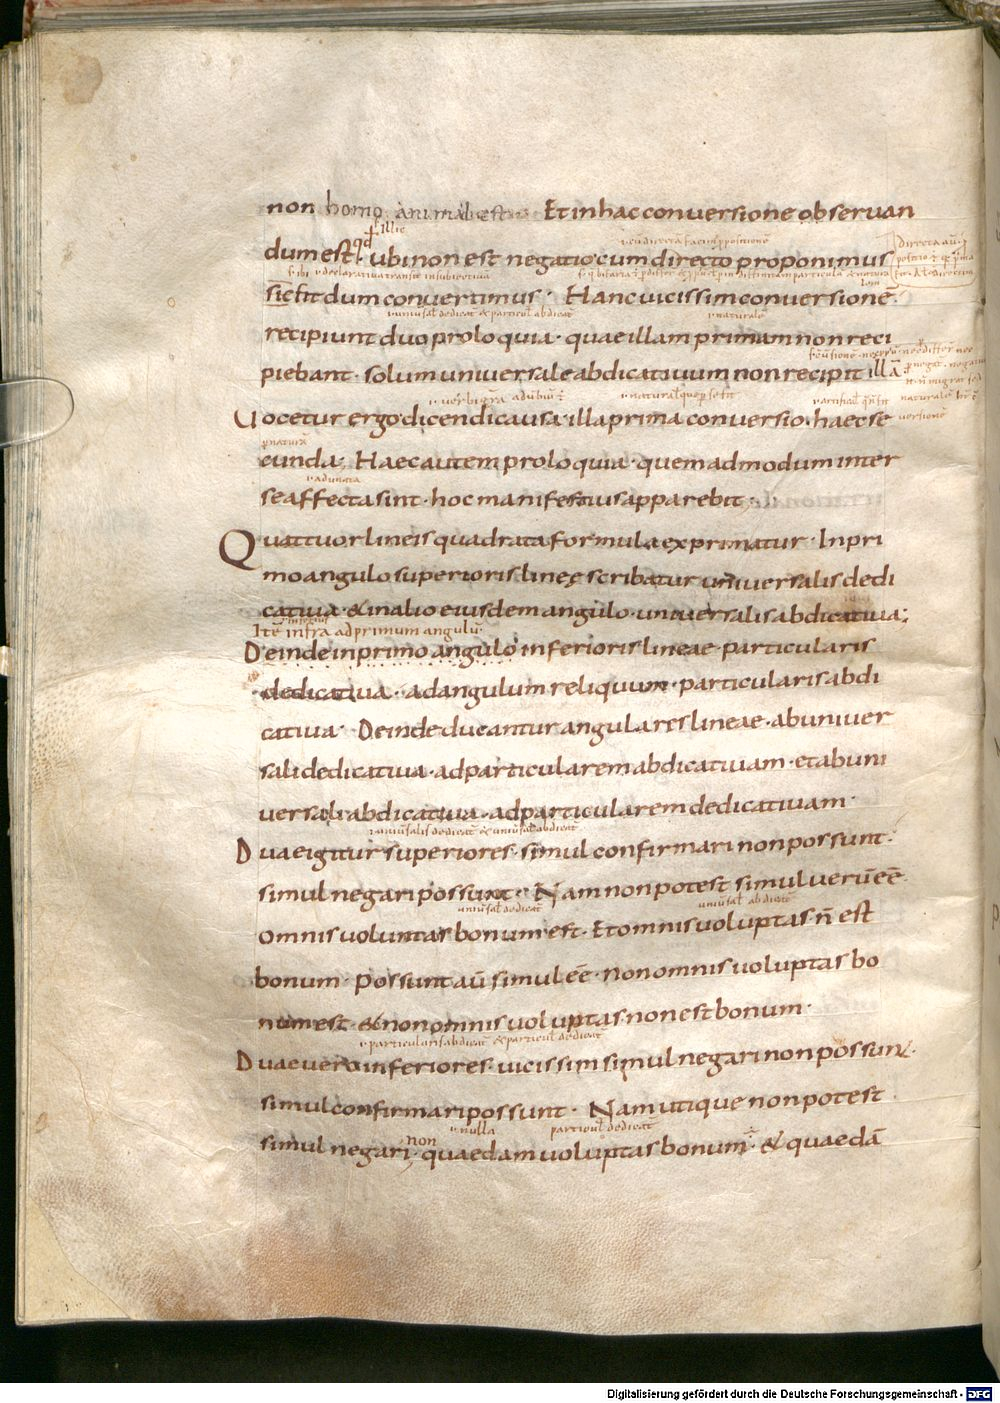 non homo animal est Et in hac conversione observan
illic
dum est qđ ubi non est negatio cum directo proponimus
sic fit dum convertimus · Hanc vicissim conversionē
recipiunt duo proloquia · quae illam primam non reci
piebant · solum universale abdicativum non recipit illā
Vocetur ergo dicendi causa · illa prima conversio · haec se
cunda · Haec autem proloquia · quemadmodum inter
se affecta sint · hoc manifestius apparebit ·
Quattuor lineis quadrata formula exprimatur · In pri
mo angulo superioris lineę scribatur universalis dedi
cativa · & in alio eiusdem angulo · universalis abdicativa;
Itē infra ad primum angulū
Deinde in primo angulo inferioris lineae particularis
dedicativa · ad angulum reliquum · particularis abdi
cativa · Deinde ducantur angulares lineae · ab univer
sali dedicativa · ad particularem abdicativam · et ab uni
versali abdicativa · ad particularem dedicativam ·
Duae igitur superiores · simul confirmari non possunt ·
simul negari possunt · Nam non potest simul verū eē
omnis voluntas bonum est · Et omnis voluptas n̄ est
bonum · Possunt aū simul eē · non omnis voluptas bo
num est · & non omnis voluptas non est bonum ·
Duae vero inferiores · vicissim simul negari non possunt ·
simul confirmari possunt · Nam utique non potest
nulla particul dedicat
simul negari · non quaedam voluptas bonum · & quaedā
Digitalisierung gefördert durch die Deutsche Forschungsgemeinschaft - DFG